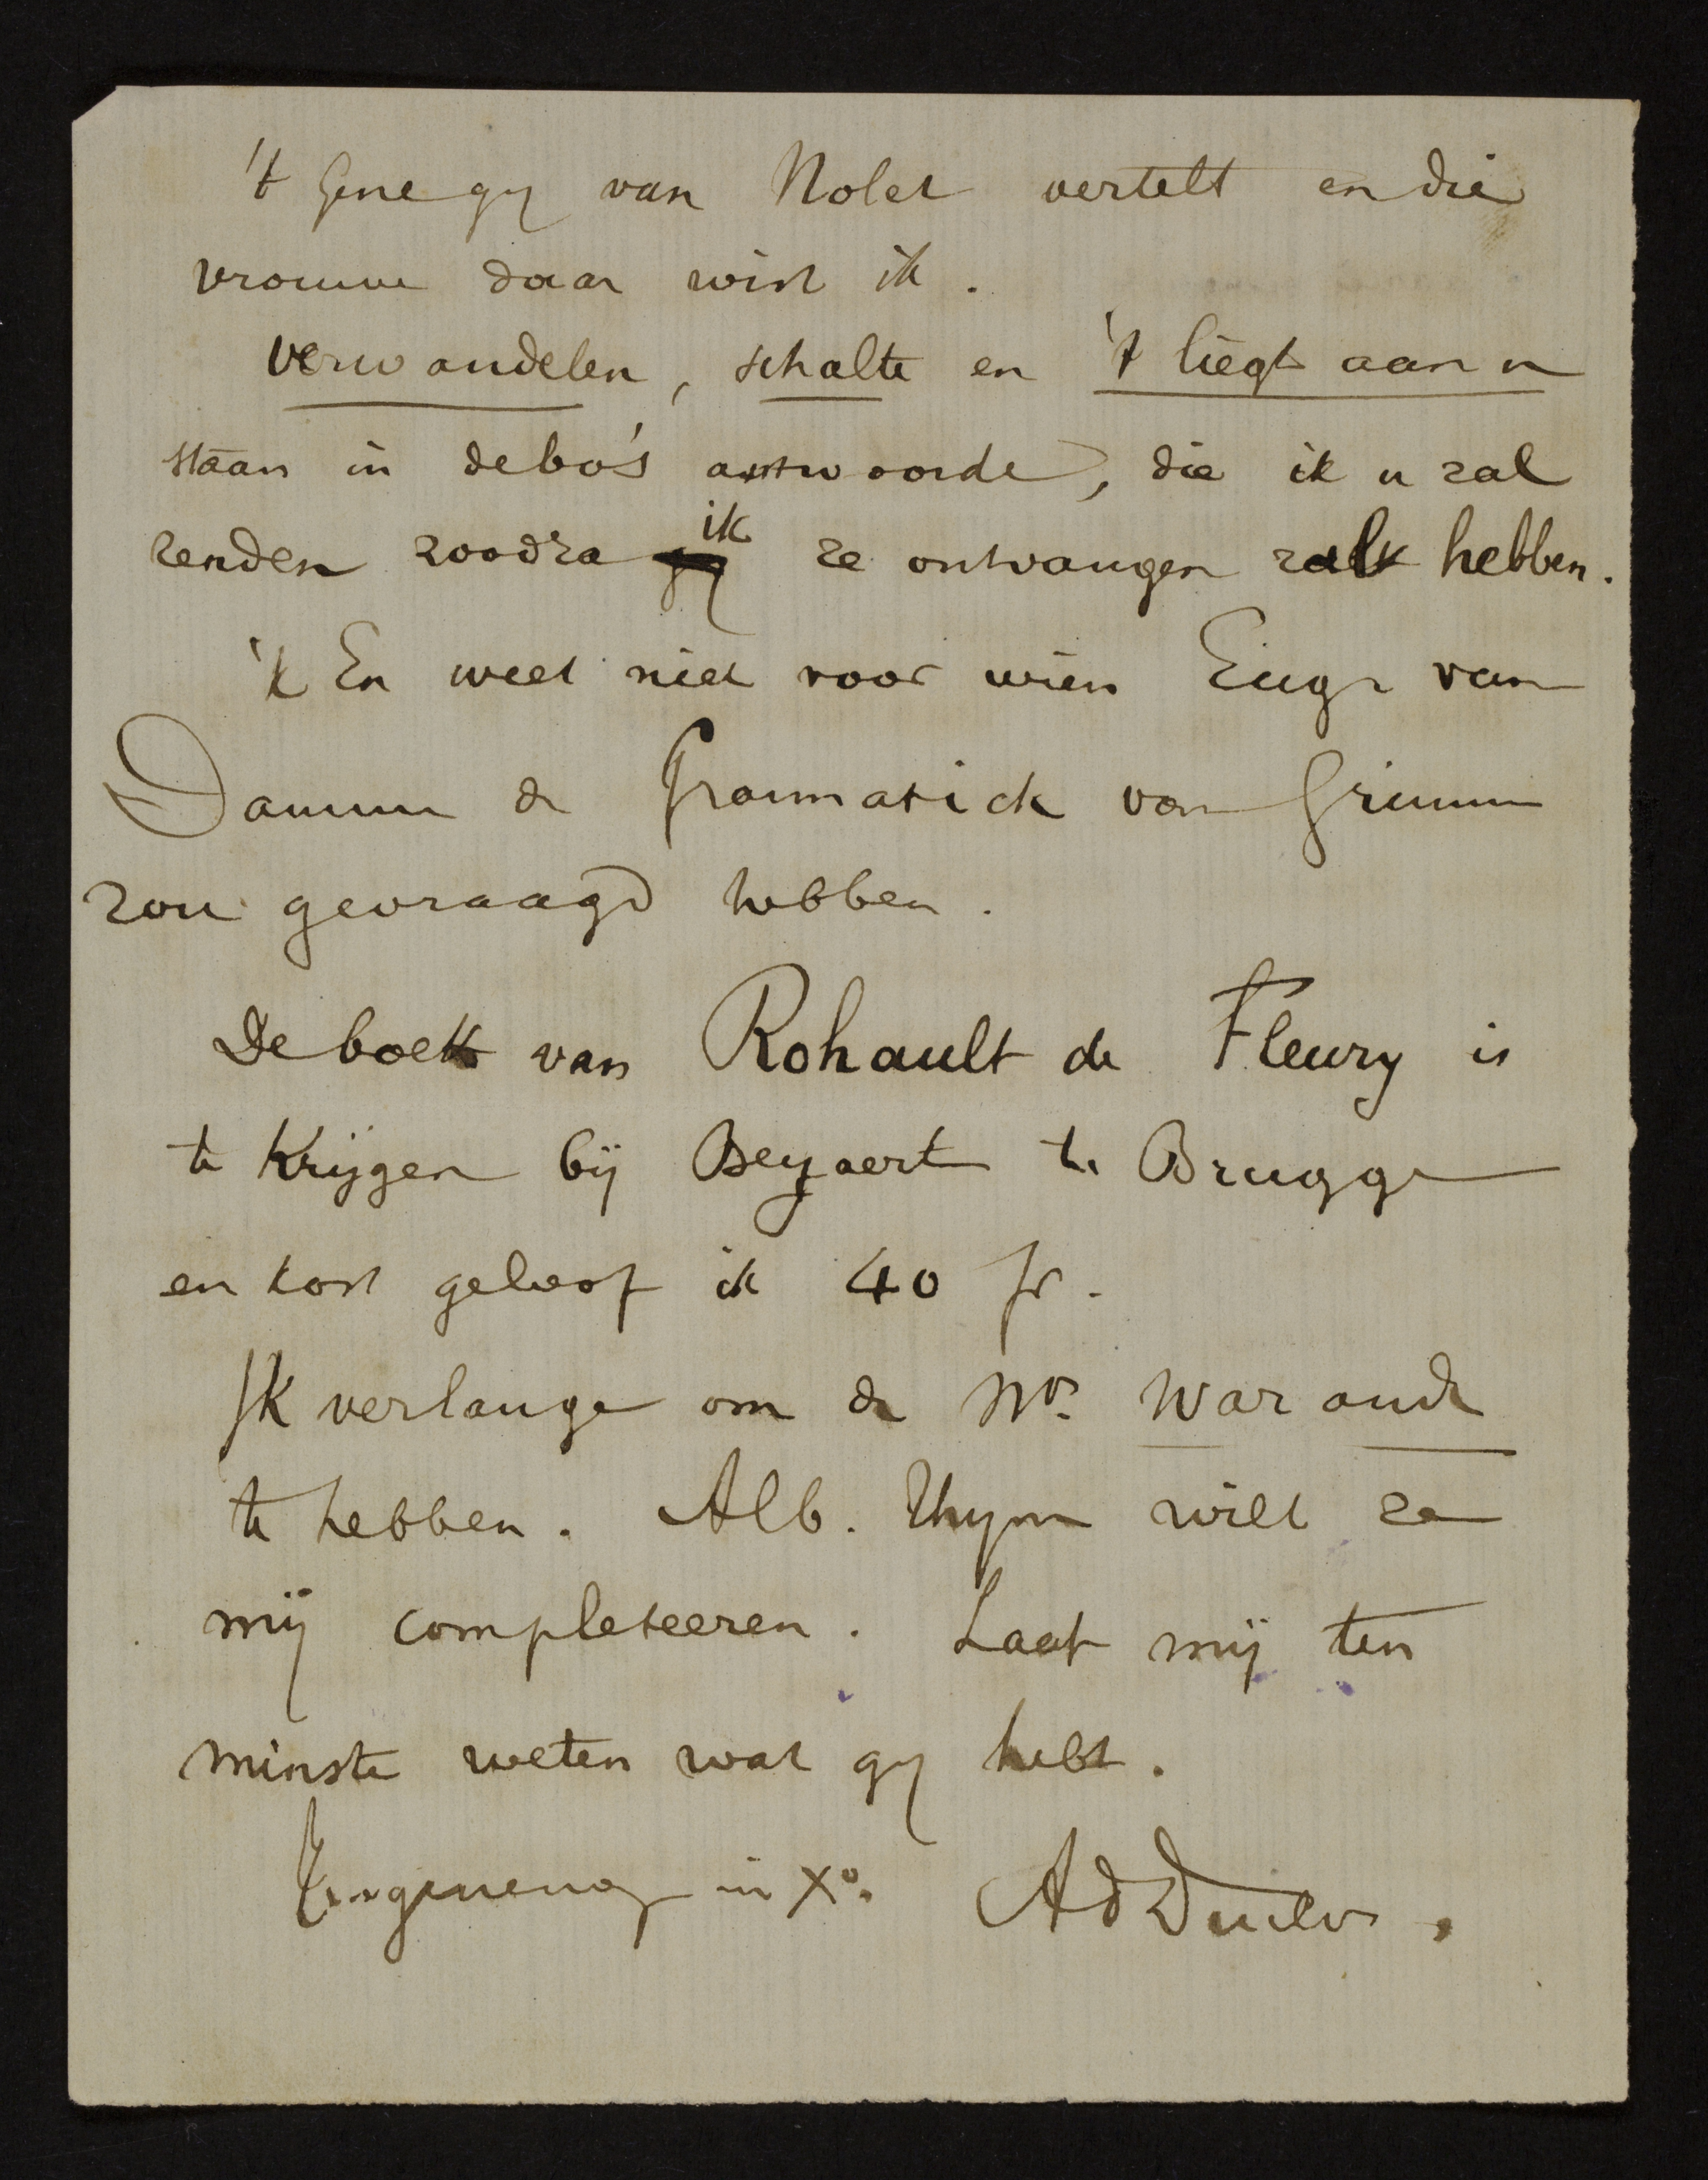 't Gene gy van Nolet vertelt en die
vrouwe daar wist ik.
Verwandelen, schalte en 't liegt aan u
staan in debo's antwoorde, die ik u zal
zenden zoodra ik ze ontvangen zal hebben.
'k En weet niet voor wien Eug. van
Damme de Grammatick van Grimm
zou gevraagd hebben.
De boek van Rohault de Fleury is
te krijgen bij Beyaert te Brugge
en kost geloof ik 40 fr.
Ik verlange om de Nrs Warande
te hebben. Alb. Thym wilt ze
mij completeeren. Laat mij ten
minste weten wat gy hebt.
in Xo. Ad Duclos.